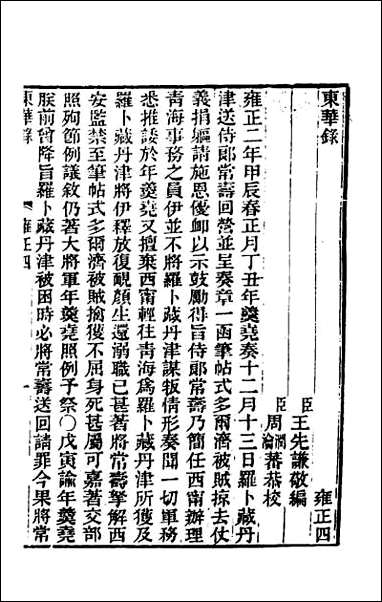 東華錄
雍正四
臣王先謙敬編
臣周潤蕃瀹蕃恭校
雍正二年甲辰春正月丁丑年羹堯奏十二月十三日羅卜藏丹
津送侍郎常壽回營並呈奏章一函筆帖式多爾濟被賊掠去仗
義捐軀請施恩優卹以示鼓勵得旨侍郎常壽乃簡任西甯辦理
青海事務之員伊並不將羅卜藏丹津謀叛情形奏聞一切軍務
悉推諉於年羹堯又擅棄西甯輕往青海為羅卜藏丹津所獲及
羅卜藏丹津將伊釋放復覥顏生還溺職已甚著將常壽拏解西
安監禁至筆帖式多爾濟被賊擒獲不屈身死甚屬可嘉著交部
照殉節例議敘仍著大將軍年羹堯照例予祭○戊寅諭年羹堯
朕前曾降旨羅卜藏丹津被困時必將常壽送回請罪今果將常
東華錄 雍正四 一